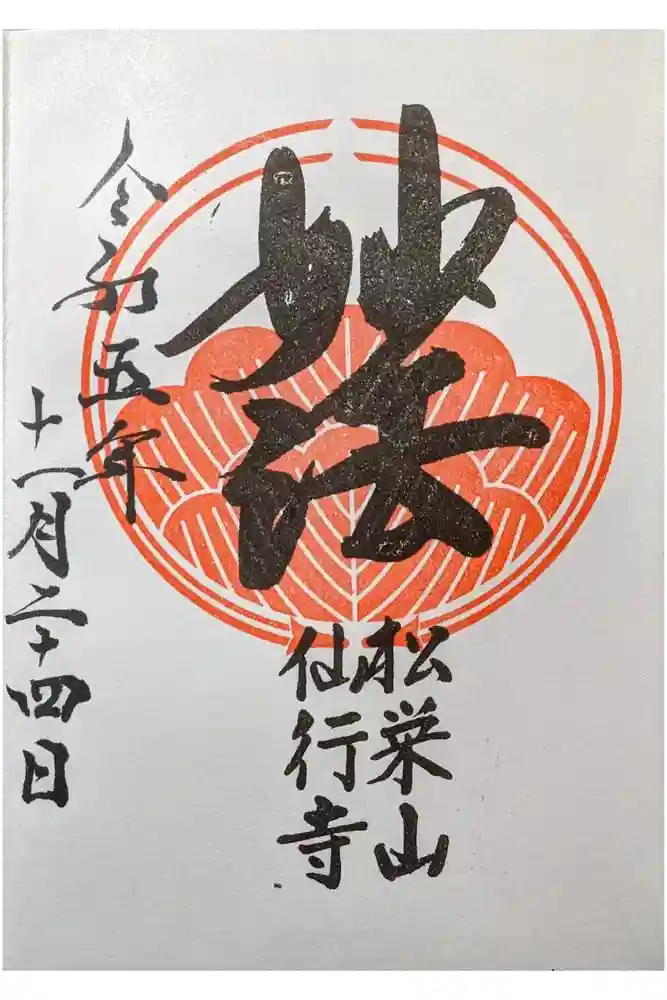 妙法
松栄山
仙行寺
令和五年
十一月二十四日